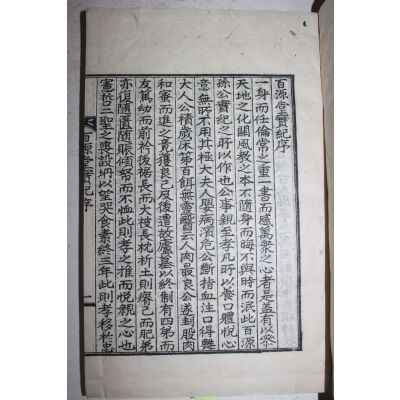 百源堂實紀序
一身而任倫常之重一書而感萬衆之心者是盖有以參
天地之化關風敎之本不隨身而晦不與時而泯此百源
孫公實紀之所以作也公事親至孝凡所以養口體悅心
意無所不用其極大夫人嬰病濱危公斷指血注口得甦
大人公積歲床第百餌無靈醫云人肉最良公遂刲股肉
和蜜而進之竟獲良已及後遭故廬墓以終制有四弟而
友篤幼而前衿後裾長而大被長枕析土則瘠己而肥弟
亦復隨匱隨賑傾帑而不恤此則孝之推而悅親之心也
憲哲二聖之喪設坍以望哭食素終三年此則孝移於忠
百源堂實紀序
一